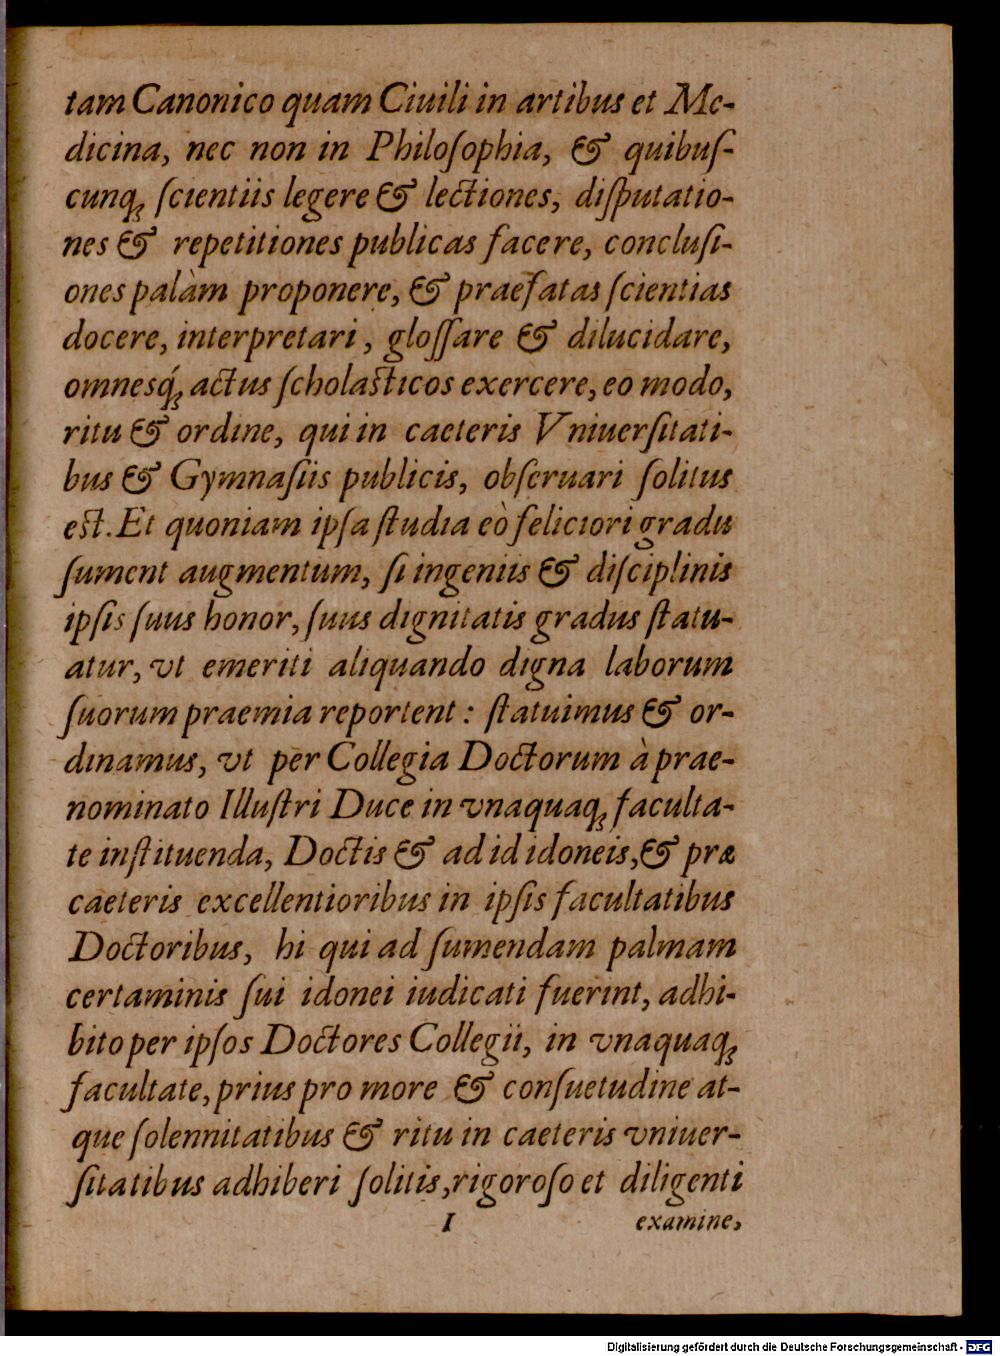 tam Canonico quam Ciuili in artibus et Me-
dicina, nec non in Philoſophia, & quibuſ-
cunqꝫ ſcientiis legere & lectiones, diſputatio-
nes & repetitiones publicas facere, concluſi-
ones palàm proponere, & praefatas ſcientias
docere, interpretari, gloſſare & dilucidare,
omnesqꝫ́ actus ſcholasticos exercere, eo modo,
ritu & ordine, qui in caeteris Vniuerſitati-
bus & Gymnaſiis publicis, obſeruari ſolitus
est. Et quoniam ipſa ſtudia eò feliciori gradu
ſument augmentum, ſi ingeniis & diſciplinis
ipſis ſuus honor, ſuus dignitatis gradus ſtatu-
atur, vt emeriti aliquando digna laborum
ſuorum praemia reportent: ſtatuimus & or-
dinamus, vt per Collegia Doctorum à prae-
nominato Illuſtri Duce in vnaquaqꝫ faculta-
te inſtituenda, Doctis & ad id idoneis, & præ
caeteris excellentioribus in ipſis facultatibus
Doctoribus, hi qui ad ſumendam palmam
certaminis ſui idonei iudicati fuerint, adhi-
bito per ipſos Doctores Collegii, in vnaquaqꝫ
facultate, prius pro more & conſuetudine at-
que ſolennitatibus & ritu in caeteris vniuer-
ſitatibus adhiberi ſolitis, rigoroſo et diligenti
I examine,
Digitalisierung gefördert durch die Deutsche Forschungsgemeinschaft - DFG